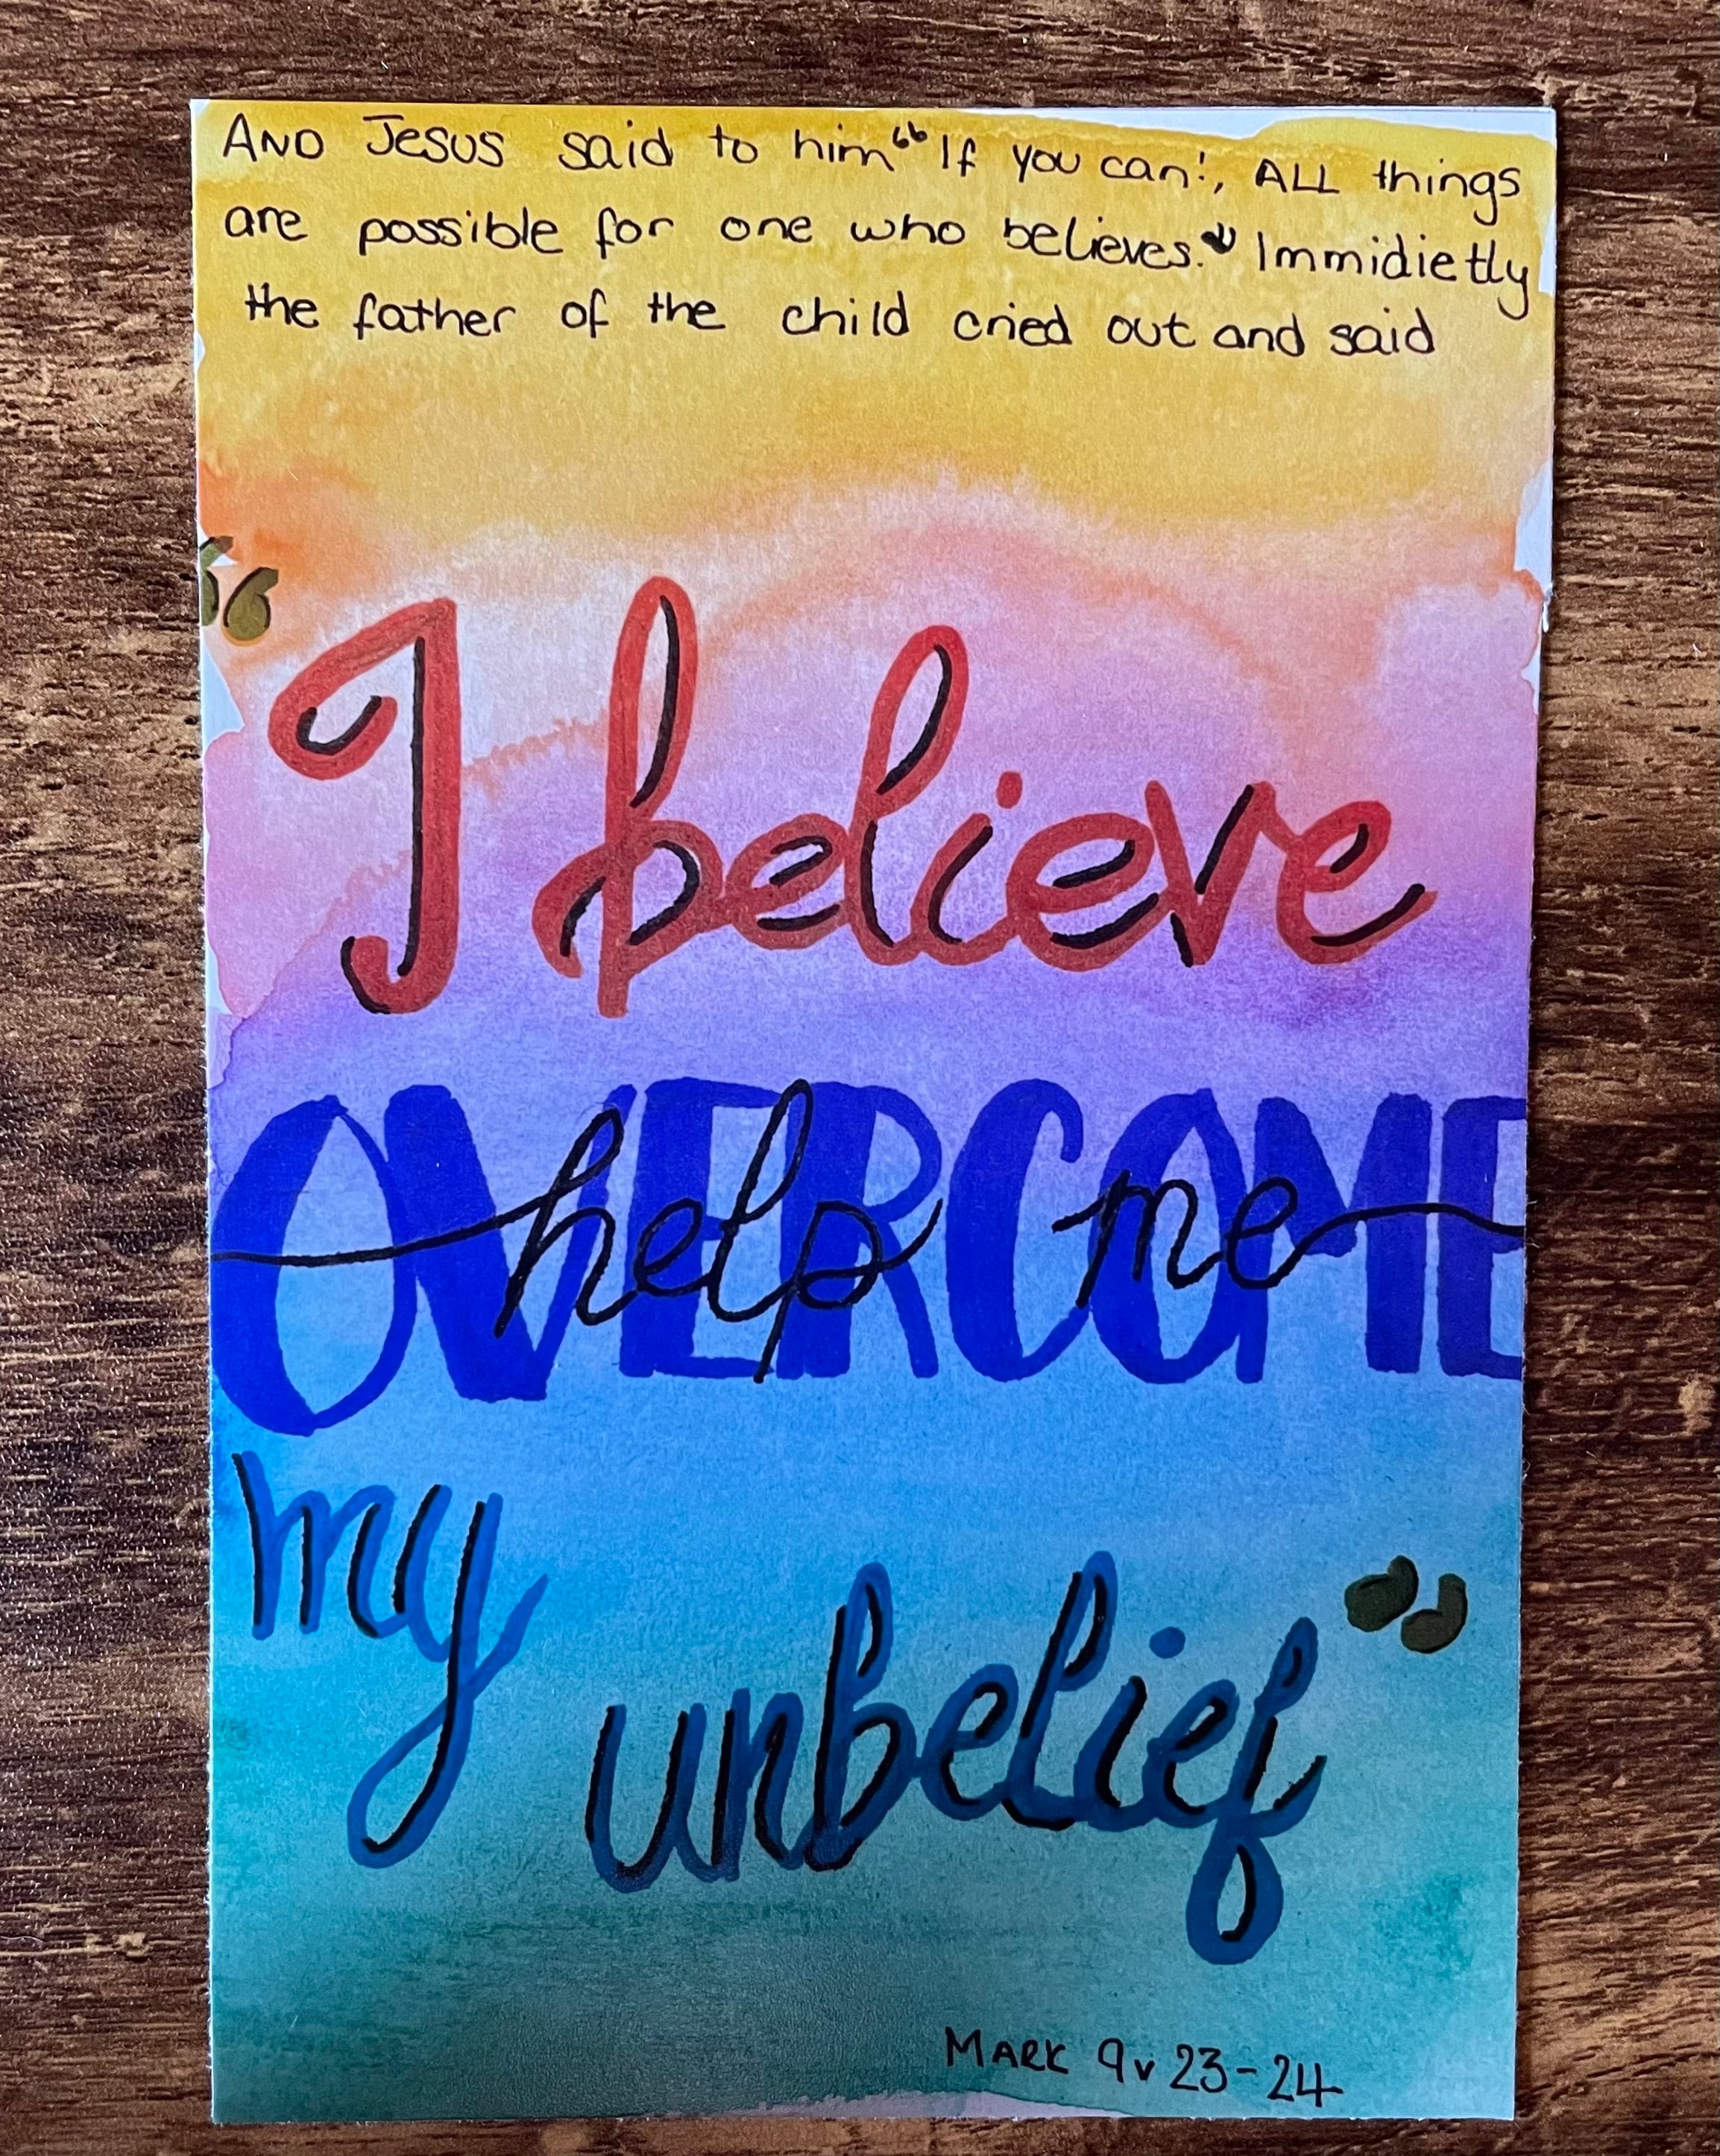 AND Jesus said to him "If you can!, ALL things
are possible for one who believes." Immidietly
the father of the child cried out and said
"I believe
help me
OVERCOME
my
unbelief"
MARK 9v 23-24